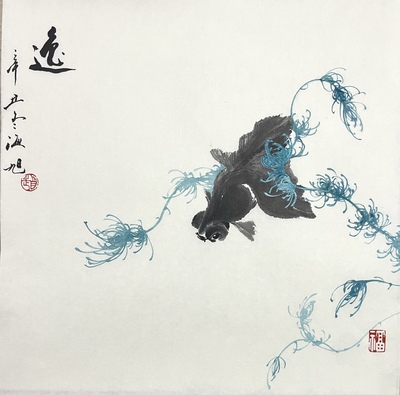 逸
辛丑冬海旭
福